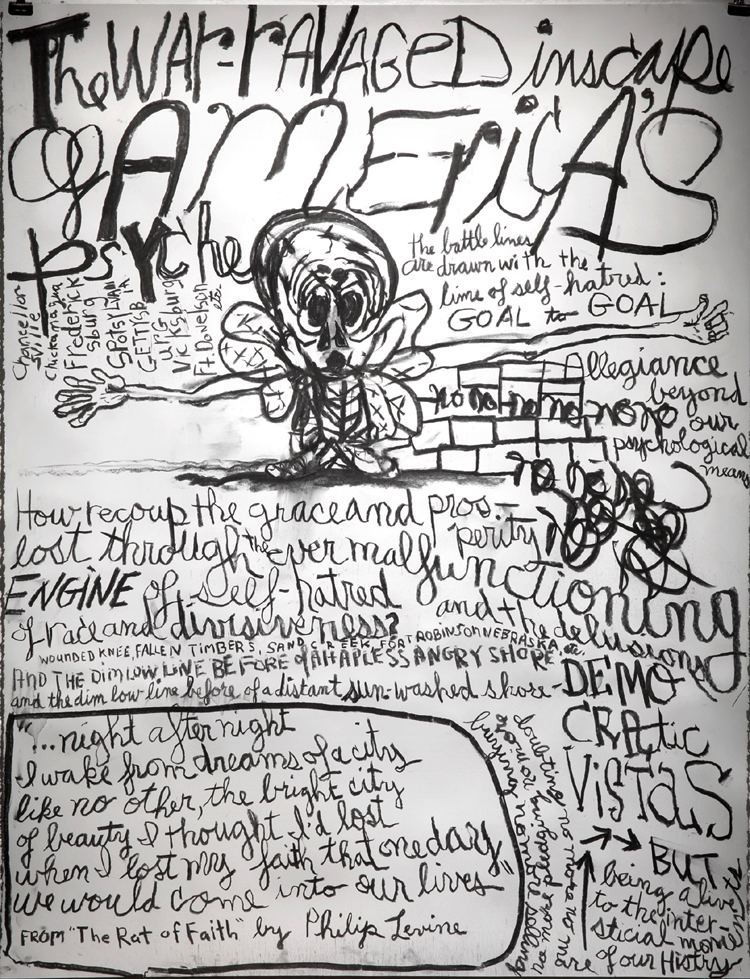 The WAr-rAVAGeD inscape
of AMEricA's
psyche
Chancellorsville
Chickamauga
Fredericksburg
SPotsylvANIA
GETTYSBurG
Vicksburg
Ft. Donelson
etc.
the battle lines
are drawn with the
lime of self-hatred:
GOAL to GOAL
Allegiance
beyond
our
psychological
means
no no no no no no
no no no
How recoup the grace and pros-
perity
lost through the ever malfunctioning
ENGiNE of self-hatred
and the delusions
of race and divisiveness?
WOUNDED KNEE, FALLEN TIMBERS, SAND CREEK, FORT ROBINSON NEBRASKA, etc.
AND THE DiM LOW LiNE BEFORE of A HAPLESS ANGRY SHORE
and the dim low line before of a distant sun-washed shore-
DEMO
CRAtic
ViSTaS
BUT
being alive
to the inter-
sticial moments
of our History
"...night after night
I wake from dreams of a city
like no other, the bright city
of beauty I thought I'd lost
when I lost my faith that one day
we would come into our lives"
FROM "The Rat of Faith" by Philip Levine
burning no more
doubting no more no more